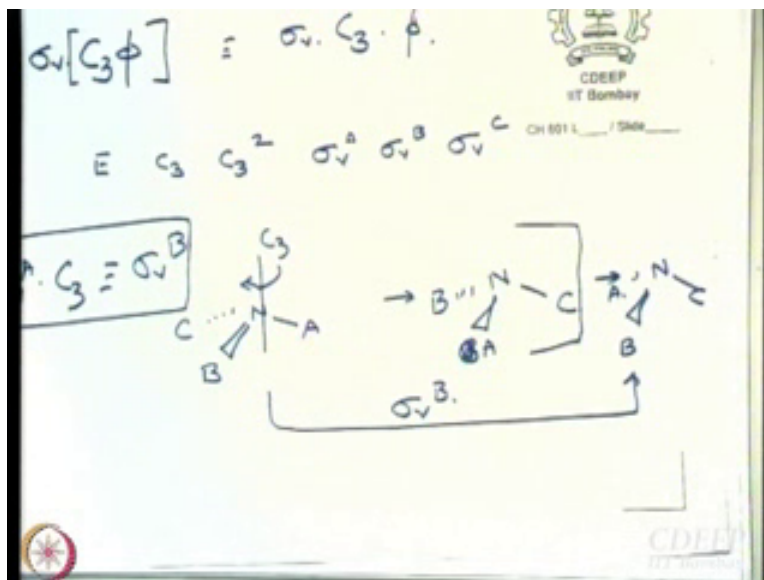 σv[C3ϕ] ≡ σv. C3. ϕ.
CDEEP
IIT Bombay
CH 601 L____ / Slide____
E C3 C3² σv^A σv^B σv^C
A. C3 ≡ σv^B
C3
C N A
B
→ B N C
A
→ A N C
B
σv^B.
CDEEP
IIT Bombay